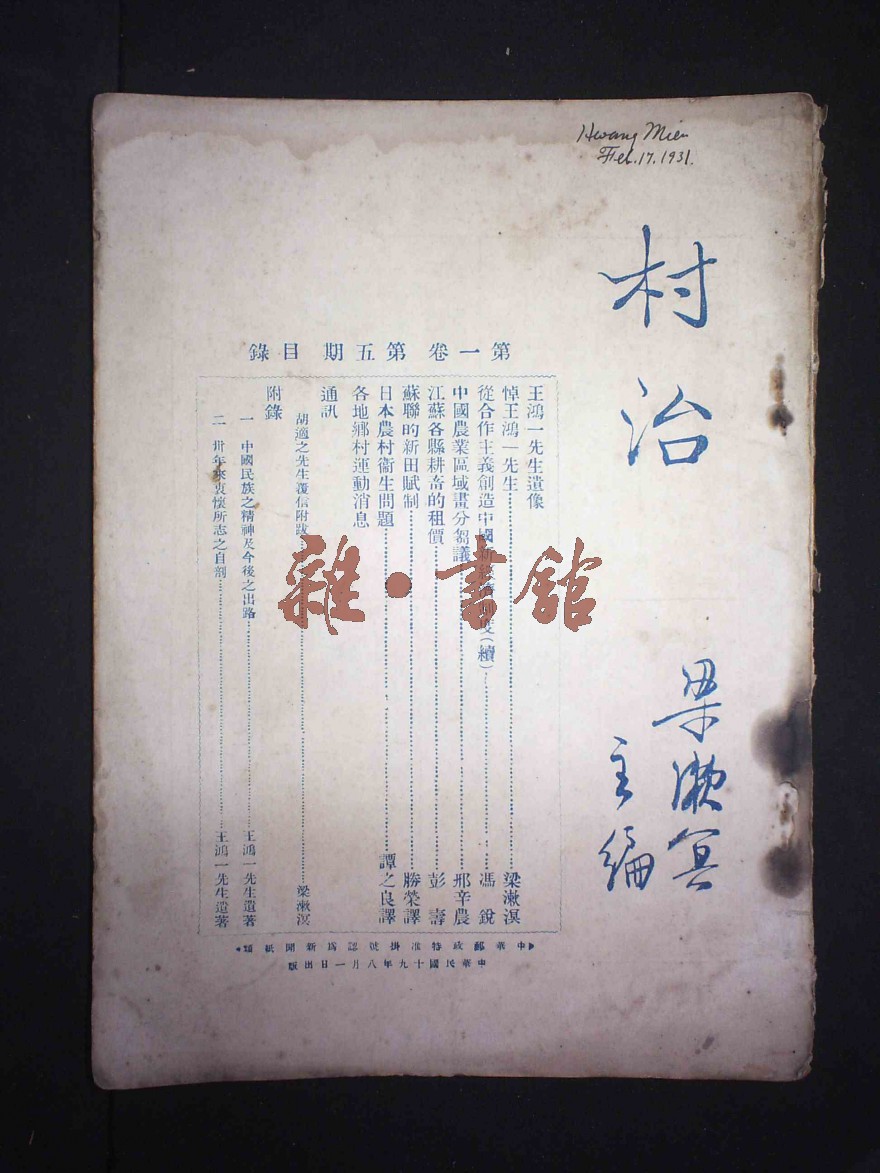 Hwang Mien
Feb. 17. 1931.
村治
梁漱冥
主編
第一卷 第五期 目錄
王鴻一先生遺像
悼王鴻一先生 梁漱溟
從合作主義創造中國 (續) 馮銳
中國農業區域畫分芻議 邢辛農
江蘇各縣耕畜的租價 彭壽
蘇聯的新田賦制 勝榮譯
日本農村衞生問題 譚之良譯
各地鄉村運動消息
通訊
胡適之先生覆信附跋 梁漱溟
附錄
一 中國民族之精神及今後之出路 王鴻一先生遺著
二 卅年來衷懷所志之自剖 王鴻一先生遺著
中華郵政特准掛號認爲新聞紙類
中華民國十九年八月一日出版
雜·書館